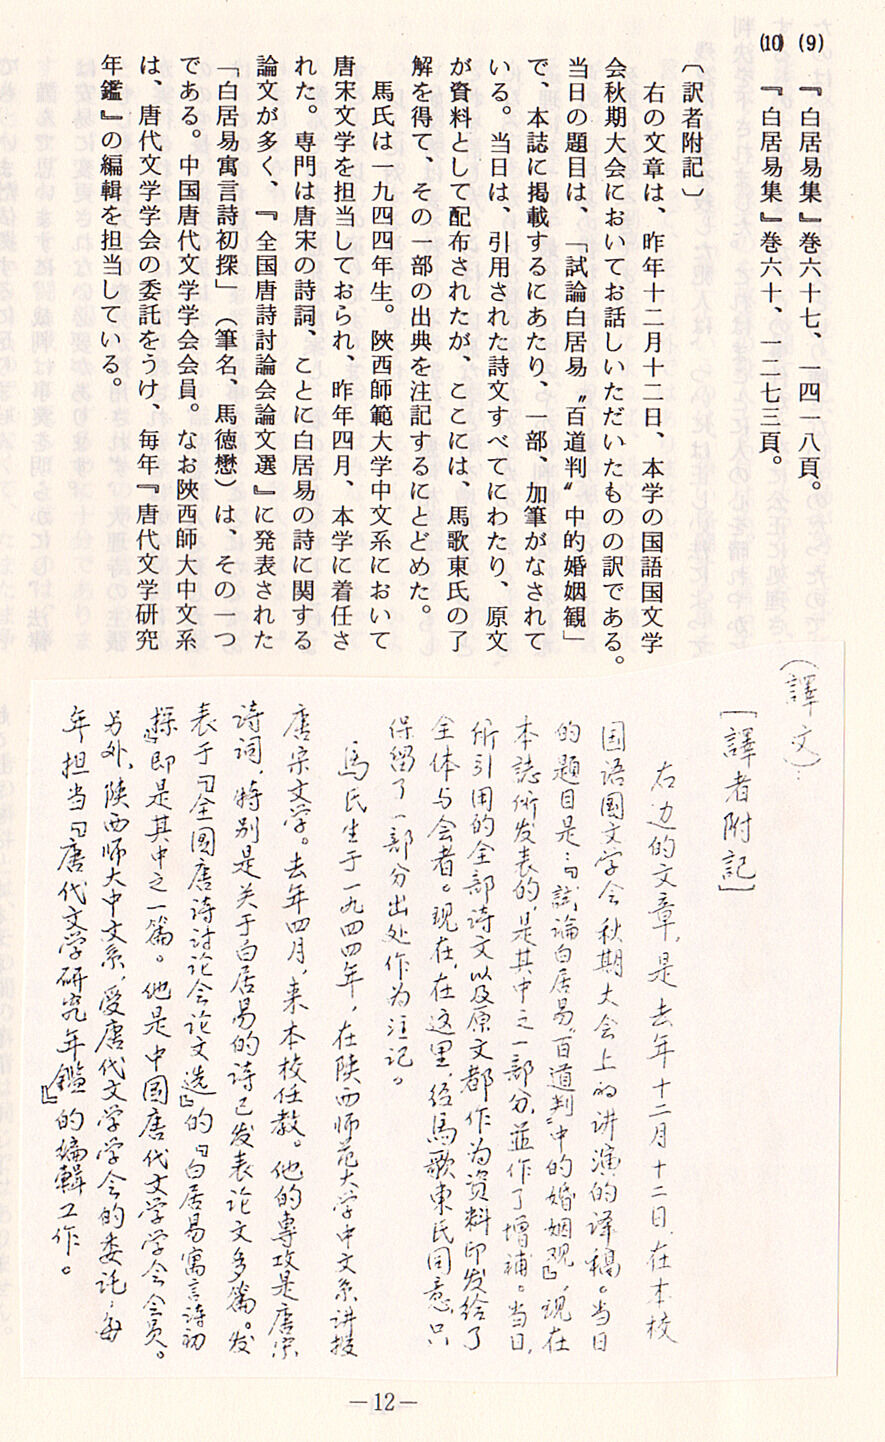 (9)　『白居易集』巻六十七、一四一八頁。
(10)　『白居易集』巻六十、一二七三頁。
〔訳者附記〕
右の文章は、昨年十二月十二日、本学の国語国文学
会秋期大会においてお話しいただいたものの訳である。
当日の題目は、「試論白居易〝百道判〟中的婚姻観」
で、本誌に掲載するにあたり、一部、加筆がなされて
いる。当日は、引用された詩文すべてにわたり、原文
が資料として配布されたが、ここには、馬歌東氏の了
解を得て、その一部の出典を注記するにとどめた。
馬氏は一九四四年生。陝西師範大学中文系において
唐宋文学を担当しておられ、昨年四月、本学に着任さ
れた。専門は唐宋の詩詞、ことに白居易の詩に関する
論文が多く、『全国唐詩討論会論文選』に発表された
「白居易寓言詩初探」（筆名、馬徳懋）は、その一つ
である。中国唐代文学学会会員。なお陝西師大中文系
は、唐代文学学会の委託をうけ、毎年『唐代文学研究
年鑑』の編輯を担当している。
(譯文)：
[譯者附記]
右边的文章，是去年十二月十二日，在本校
国语国文学会秋期大会上的讲演的译稿。当日
的题目是：『試論白居易"百道判"中的婚姻观』，现在
本誌所发表的，是其中之一部分，並作了增補。当日，
所引用的全部诗文以及原文都作为资料印发给了
全体与会者。现在，在这里，经馬歌東氏同意，只
保留了一部分出处作为注记。
馬氏生于一九四四年，在陕西师范大学中文系讲授
唐宋文学。去年四月，来本校任教。他的專攻是唐宋
诗词，特别是关于白居易的诗已发表论文多篇。发
表于『全国唐诗讨论会论文选』的『白居易寓言诗初
探』即是其中之一篇。他是中国唐代文学学会会员。
另外，陕西师大中文系，受唐代文学学会的委託，每
年担当『唐代文学研究年鑑』的编輯工作。
—12—